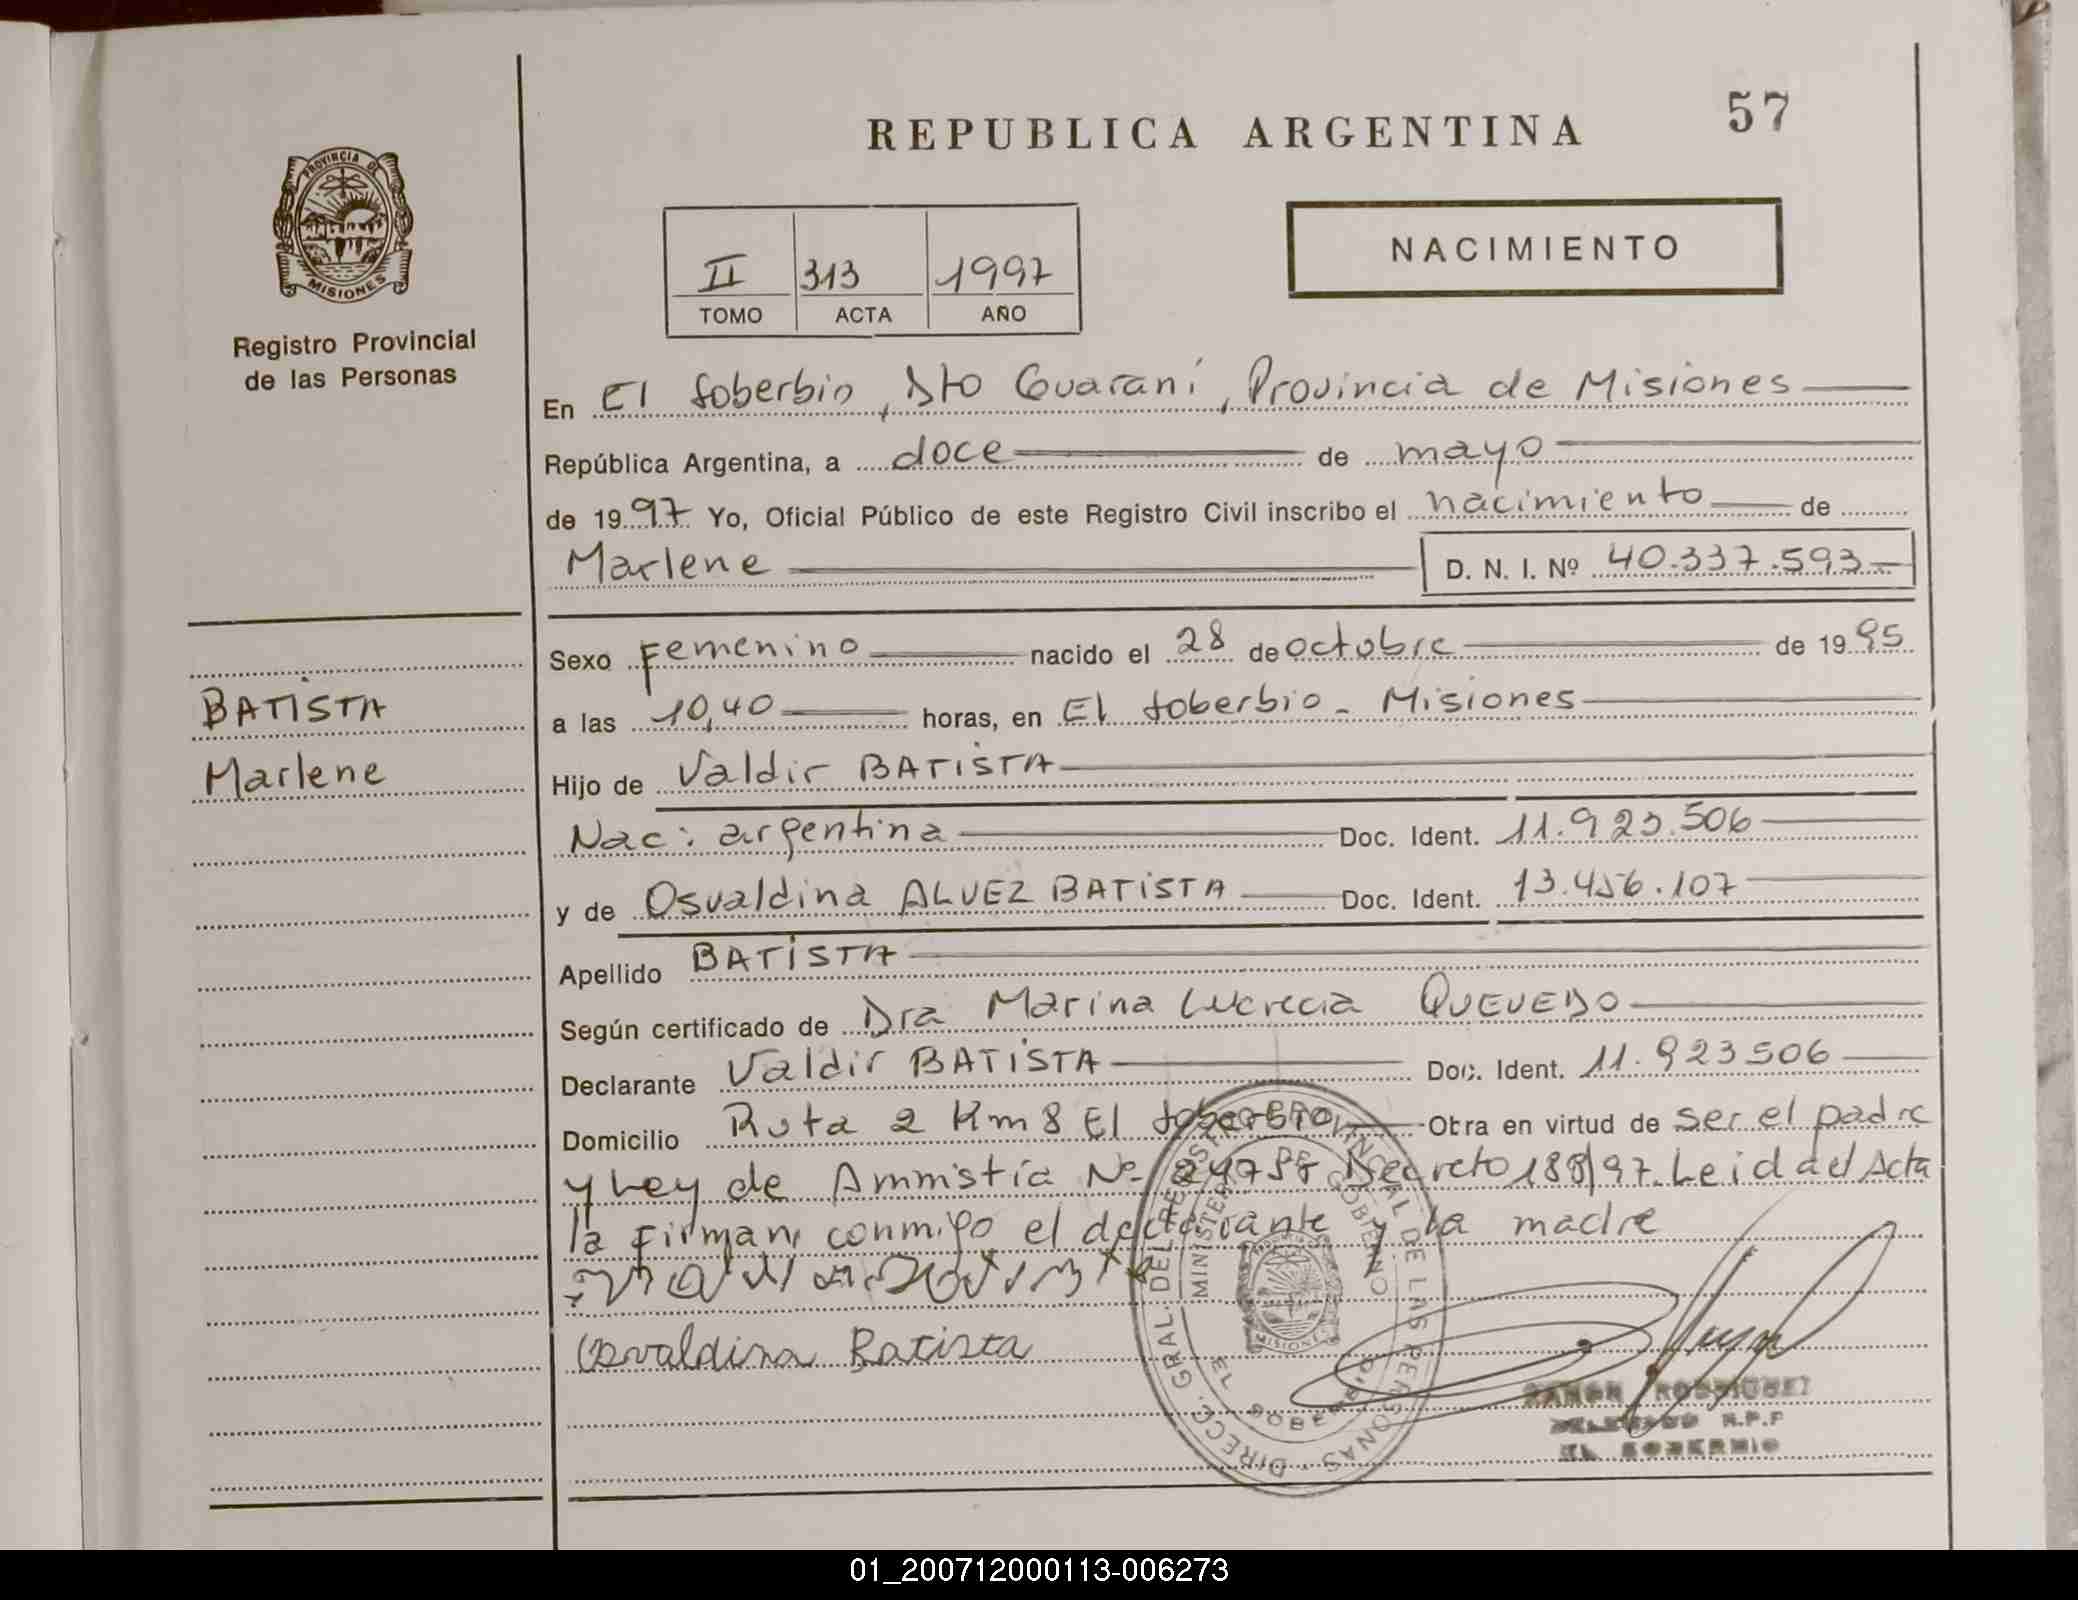 REPUBLICA ARGENTINA
57
PROVINCIA DE
MISIONES
Registro Provincial
de las Personas
II 313 1997
TOMO ACTA AÑO
NACIMIENTO
En El Soberbio, Dto Guaraní, Provincia de Misiones
República Argentina, a doce de mayo
de 1997 Yo, Oficial Público de este Registro Civil inscribo el nacimiento de
Marlene D. N. I. Nº 40.337.593
Sexo Femenino nacido el 28 de octubre de 1995
BATISTA
a las 10,40 horas, en El Soberbio - Misiones
Marlene
Hijo de Valdir BATISTA
Nac: argentina Doc. Ident. 11.923.506
y de Osvaldina ALVEZ BATISTA Doc. Ident. 13.456.107
Apellido BATISTA
Según certificado de Dra Marina Lucrecia QUEVEDO
Declarante Valdir BATISTA Doc. Ident. 11.923506
Domicilio Ruta 2 Km 8 El Soberbio Otra en virtud de ser el padre
y Ley de Amnistía Nº Decreto 188/97. Leida el Acta
la firman conmigo el declarante y la madre
Osvaldina Batista
DIRECC. GRAL. DEL REGISTRO PROVINCIAL DE LAS PERSONAS
MINISTERIO DE GOBIERNO
MISIONES
EL SOBERBIO
RAMON RODRIGUEZ
DELEGADO R.P.P
EL SOBERBIO
01_200712000113-006273